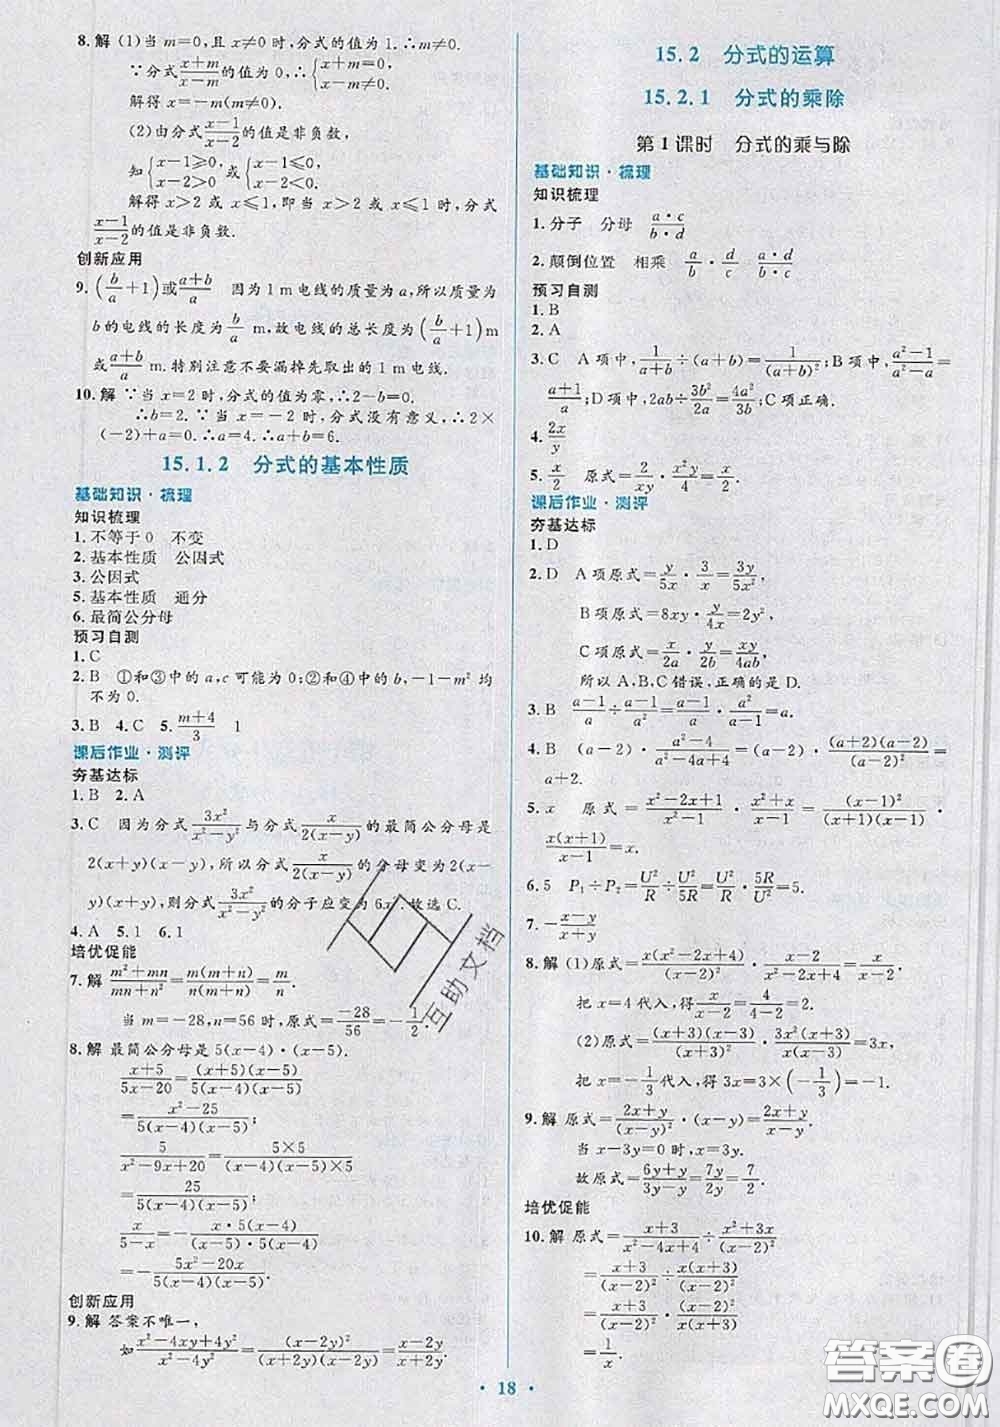 8.解 (1)当 m=0,且 x≠0时,分式的值为1.∴m=0.
∵分式(x+m)/(x-m)的值为0,∴{x+m=0, x-m≠0.
解得 x=-m(m≠0).
(2)由分式(x-1)/(x-2)的值是非负数,
知{x-1≥0, x-2>0 或{x-1≤0, x-2<0.
解得 x>2 或 x≤1,即当 x>2 或 x≤1 时,分式
(x-1)/(x-2)的值是非负数.
创新应用
9.(b/a+1)或(a+b)/a 因为1 m电线的质量为a,所以质量为
b的电线的长度为 b/a m,故电线的总长度为(b/a+1)m
或(a+b)/a m.特别注意不要漏掉先取出的1 m电线.
10.解 ∵当 x=2时,分式的值为零,∴2-b=0.
∴b=2.∵当 x=-2 时,分式没有意义,∴2×
(-2)+a=0.∴a=4.∴a+b=6.
15.1.2 分式的基本性质
基础知识·梳理
知识梳理
1.不等于0 不变
2.基本性质 公因式
3.公因式
5.基本性质 通分
6.最简公分母
预习自测
1.C
2.B ①和③中的a,c可能为0;②和④中的b,-1-m² 均
不为0.
3.B 4.C 5.(m+4)/3 1
课后作业·测评
夯基达标
1.B 2.A
3.C 因为分式3x²/(x²-y²)与分式x/2(x-y)的最简公分母是
2(x+y)(x-y),所以分式x/2(x-y)的分母变为2(x-
y)(x+y),则分式3x²/(x²-y²)的分子应变为6x².故选C.
4.A 5.1 6.1
培优促能
7.解 (m²+mn)/(mn+n²)=m(m+n)/n(m+n)=m/n.
当 m=-28,n=56时,原式=-28/56=-1/2.
8.解 最简公分母是5(x-4)·(x-5).
(x+5)/(5x-20)=(x+5)(x-5)/5(x-4)(x-5)
=(x²-25)/5(x-4)(x-5);
5/(x²-9x+20)=5×5/(x-4)(x-5)×5
=25/5(x-4)(x-5);
x/(5-x)=-x·5(x-4)/5(x-5)(x-4)
=-(5x²-20x)/5(x-4)(x-5).
创新应用
9.解 答案不唯一,
如(x²-4xy+4y²)/(x²-4y²)=(x-2y)²/(x+2y)(x-2y)=(x-2y)/(x+2y).
15.2 分式的运算
15.2.1 分式的乘除
第1课时 分式的乘与除
基础知识·梳理
知识梳理
1.分子 分母 a·c/b·d
2.颠倒位置 相乘 a/b·d/c a·d/b·c
预习自测
1.B
2.A
3.C A项中,1/(a+b)÷(a+b)=1/(a+b)²;B项中,(a²-1)/(a-1)=
(a+1)/1;D项中,2ab÷3b²/2a=4a²/3b;C项正确.
4.2x/y
5.x/2 原式=2/xy·x²y/4=x/2.
课后作业·测评
夯基达标
1.D
2.D A项原式=y/5x·3/x=3y/5x²,
B项原式=8xy·y/4x=2y²,
C项原式=x/2a·y/2b=xy/4ab,
所以A、B、C错误,正确的是D.
3.B (a-1)/a÷(a-1)/a²=(a-1)/a·a²/(a-1)=a.
4.B (a-2)·(a²-4)/(a²-4a+4)=(a-2)·(a+2)(a-2)/(a-2)²=
a+2.
5.x 原式=(x²-2x+1)/(x²-1)·(x²+x)/(x-1)=(x-1)²/(x+1)(x-1)·
x(x+1)/(x-1)=x.
6.5 P₁÷P₂=U²/R÷U²/5R=U²/R·5R/U²=5.
7.-(x-y)/(x+y)
8.解(1)原式=x(x²-2x+4)/(x-2)²·(x-2)/(x²-2x+4)=x/(x-2).
把 x=4代入,得x/(x-2)=4/(4-2)=2.
(2)原式=(x+3)(x-3)/(x+3)²·3x(x+3)/(x-3)=3x,
把 x=-1/3代入,得 3x=3×(-1/3)=-1.
9.解 原式=(2x+y)/(x-y)²·(x-y)=(2x+y)/(x-y).
当 x-3y=0时,x=3y.
故原式=(6y+y)/(3y-y)=7y/2y=7/2.
培优促能
10.解 原式=(x+3)/(x²-4x+4)÷(x²+3x)/(x-2)²
=(x+3)/(x-2)²÷x(x+3)/(x-2)²
=(x+3)/(x-2)²·(x-2)²/x(x+3)
=1/x.
· 18 ·
互助文档
答案圈
MXQE.COM